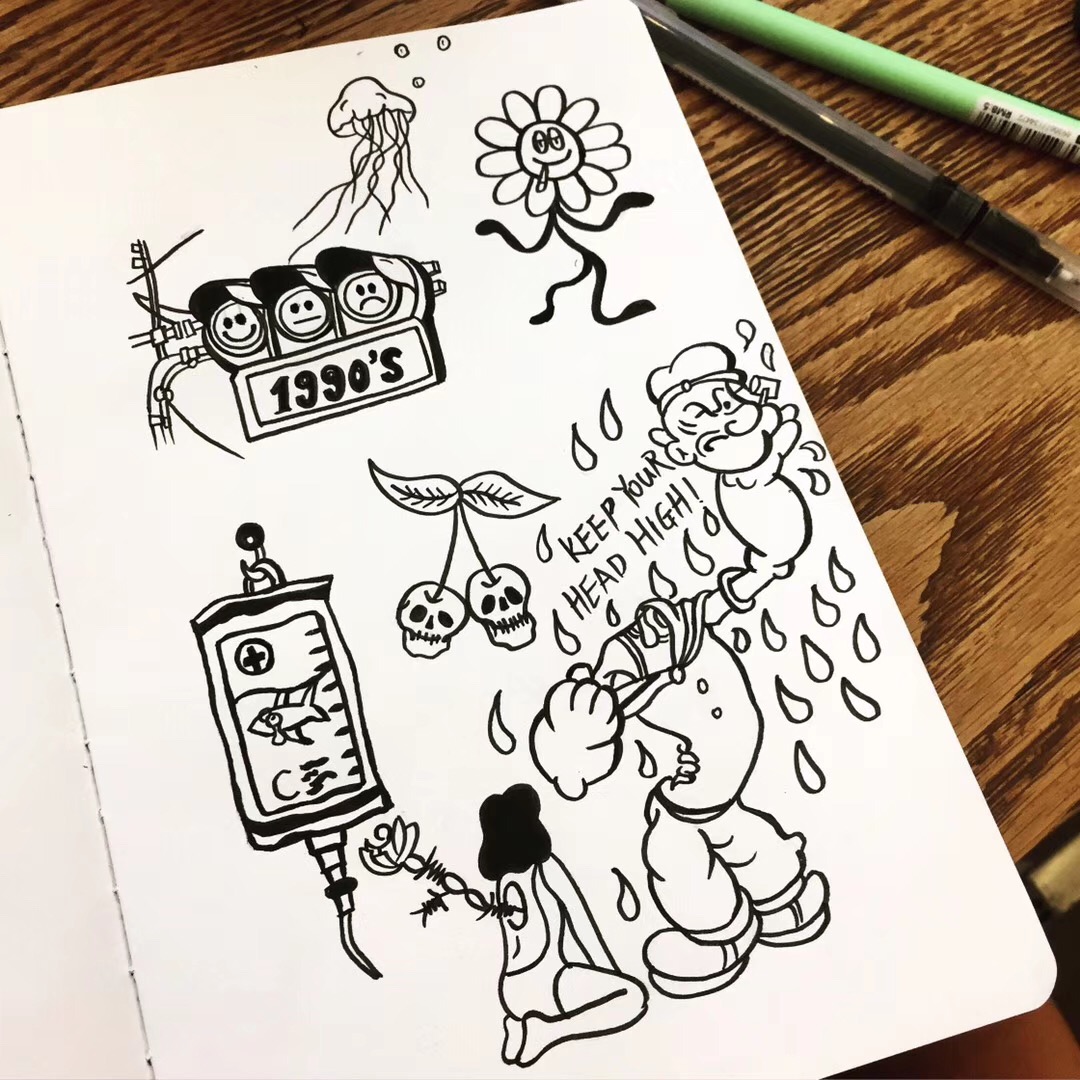 1990'S
KEEP YOUR
HEAD HIGH!
RMB.5